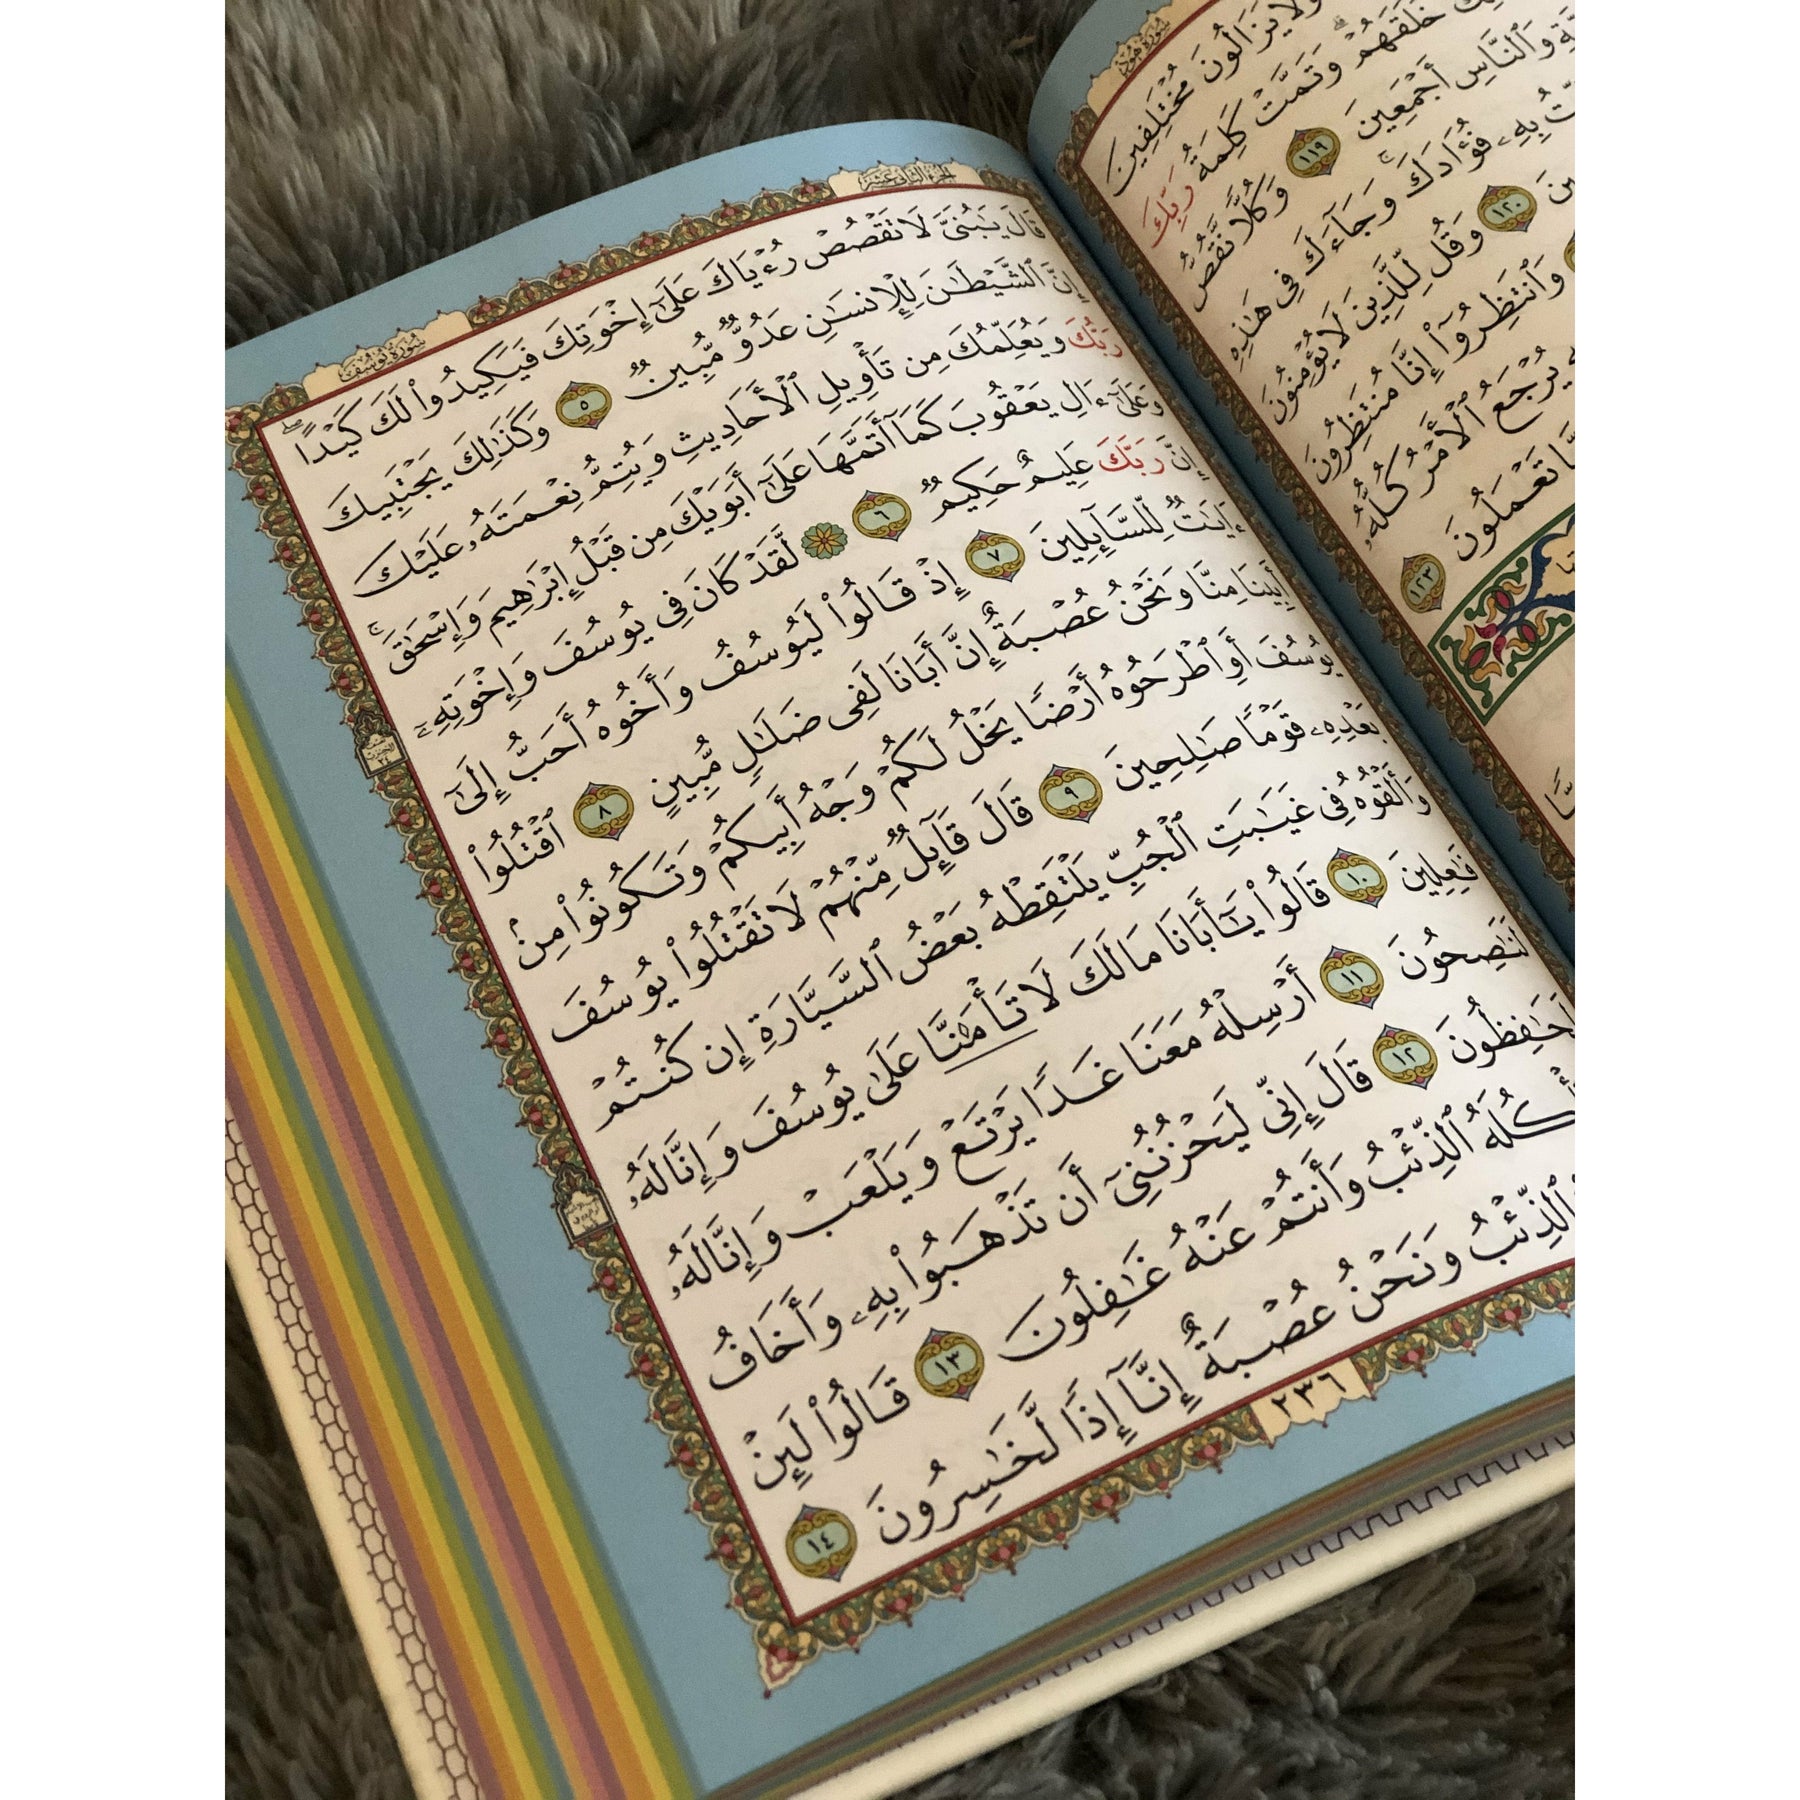 سُورَةُ هُودٍ
وَلَا يَزَالُونَ مُخْتَلِفِينَ
خَلَقَهُمْ ۗ وَتَمَّتْ كَلِمَةُ رَبِّكَ
وَٱلنَّاسِ أَجْمَعِينَ ١١٩ وَكُلًّا نَّقُصُّ
بِهِۦ فُؤَادَكَ ۚ وَجَآءَكَ فِى هَٰذِهِ
١٢٠ وَقُل لِّلَّذِينَ لَا يُؤْمِنُونَ
وَٱنتَظِرُوٓا۟ إِنَّا مُنتَظِرُونَ
يُرْجَعُ ٱلْأَمْرُ كُلُّهُۥ
تَعْمَلُونَ ١٢٣
الجزء الثاني عشر
سُورَةُ يُوسُفَ
قَالَ يَٰبُنَىَّ لَا تَقْصُصْ رُءْيَاكَ عَلَىٰٓ إِخْوَتِكَ فَيَكِيدُوا۟ لَكَ كَيْدًا ۖ
إِنَّ ٱلشَّيْطَٰنَ لِلْإِنسَٰنِ عَدُوٌّ مُّبِينٌ ٥ وَكَذَٰلِكَ يَجْتَبِيكَ
رَبُّكَ وَيُعَلِّمُكَ مِن تَأْوِيلِ ٱلْأَحَادِيثِ وَيُتِمُّ نِعْمَتَهُۥ عَلَيْكَ
وَعَلَىٰٓ ءَالِ يَعْقُوبَ كَمَآ أَتَمَّهَا عَلَىٰٓ أَبَوَيْكَ مِن قَبْلُ إِبْرَٰهِيمَ وَإِسْحَٰقَ ۚ
إِنَّ رَبَّكَ عَلِيمٌ حَكِيمٌ ٦ لَّقَدْ كَانَ فِى يُوسُفَ وَإِخْوَتِهِۦٓ
ءَايَٰتٌ لِّلسَّآئِلِينَ ٧ إِذْ قَالُوا۟ لَيُوسُفُ وَأَخُوهُ أَحَبُّ إِلَىٰٓ
أَبِينَا مِنَّا وَنَحْنُ عُصْبَةٌ إِنَّ أَبَانَا لَفِى ضَلَٰلٍ مُّبِينٍ ٨ ٱقْتُلُوا۟
يُوسُفَ أَوِ ٱطْرَحُوهُ أَرْضًا يَخْلُ لَكُمْ وَجْهُ أَبِيكُمْ وَتَكُونُوا۟ مِنۢ
بَعْدِهِۦ قَوْمًا صَٰلِحِينَ ٩ قَالَ قَآئِلٌ مِّنْهُمْ لَا تَقْتُلُوا۟ يُوسُفَ
وَأَلْقُوهُ فِى غَيَٰبَتِ ٱلْجُبِّ يَلْتَقِطْهُ بَعْضُ ٱلسَّيَّارَةِ إِن كُنتُمْ
فَٰعِلِينَ ١٠ قَالُوا۟ يَٰٓأَبَانَا مَا لَكَ لَا تَأْمَ۫نَّا عَلَىٰ يُوسُفَ وَإِنَّا لَهُۥ
لَنَٰصِحُونَ ١١ أَرْسِلْهُ مَعَنَا غَدًا يَرْتَعْ وَيَلْعَبْ وَإِنَّا لَهُۥ
لَحَٰفِظُونَ ١٢ قَالَ إِنِّى لَيَحْزُنُنِىٓ أَن تَذْهَبُوا۟ بِهِۦ وَأَخَافُ
يَأْكُلَهُ ٱلذِّئْبُ وَأَنتُمْ عَنْهُ غَٰفِلُونَ ١٣ قَالُوا۟ لَئِنْ
ٱلذِّئْبُ وَنَحْنُ عُصْبَةٌ إِنَّآ إِذًا لَّخَٰسِرُونَ ١٤
٢٣٦